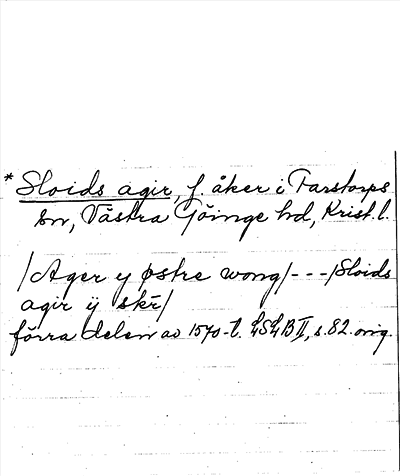 * Sloids agir, f. åker i Farstorps
sn, Västra Göinge hd, Krist. l.
/Ager y østre wong/ - - - /Sloids
agir ÿ skr̄/
förra delen av 1570-t. LSLB II, s. 82. orig.